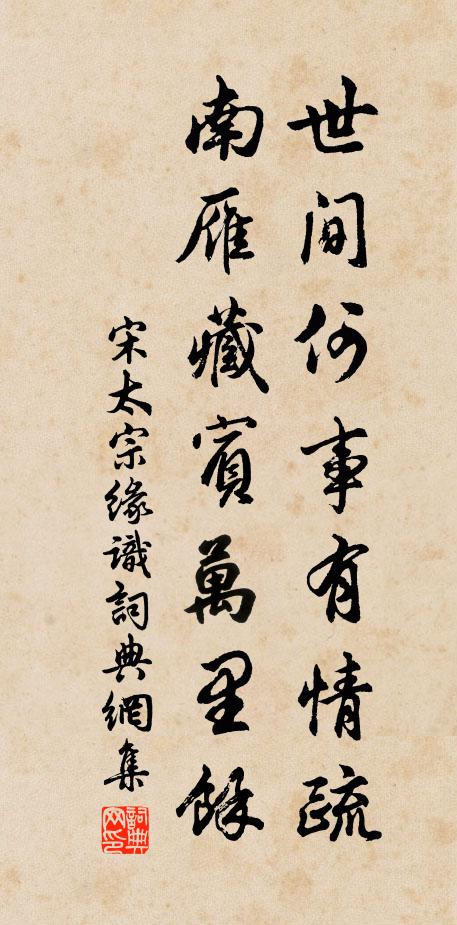 世間何事有情疏
南雁藏賓萬里餘
宋太宗緣識詞典網集
詞典网印